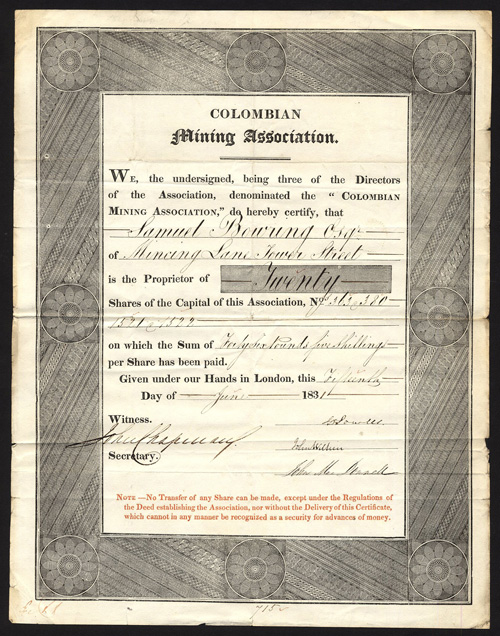 COLOMBIAN
Mining Association.
WE, the undersigned, being three of the Directors
of the Association, denominated the “ COLOMBIAN
MINING ASSOCIATION,” do hereby certify, that
Samuel Bowring Esqr
of Mincing Lane Tower Street
is the Proprietor of Twenty
Shares of the Capital of this Association, No 363 @ 380
1521 @ 1522
on which the Sum of Forty six Pounds five shillings
per Share has been paid.
Given under our Hands in London, this Fifteenth
Day of June 1831
Witness.
Chapman
John Wilkin
Secretary.
John
NOTE —No Transfer of any Share can be made, except under the Regulations of
the Deed establishing the Association, nor without the Delivery of this Certificate,
which cannot in any manner be recognized as a security for advances of money.